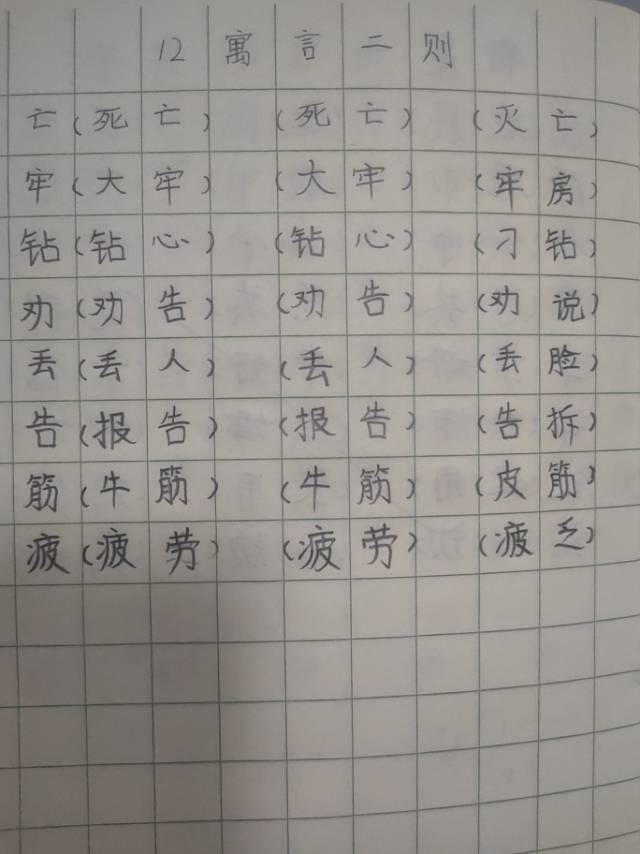 12 寓言二则
亡(死亡) (死亡) (灭亡)
牢(大牢) (大牢) (牢房)
钻(钻心) (钻心) (刁钻)
劝(劝告) (劝告) (劝说)
丢(丢人) (丢人) (丢脸)
告(报告) (报告) (告拆)
筋(牛筋) (牛筋) (皮筋)
疲(疲劳) (疲劳) (疲乏)